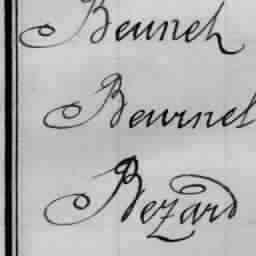 Beuneh
Beurnel
Bezard